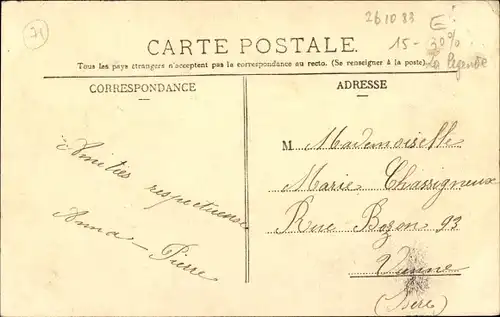 71
261083
E
15-
30%
La legende
CARTE POSTALE.
Tous les pays étrangers n'acceptent pas la correspondance au recto. (Se renseigner à la poste).
CORRESPONDANCE
ADRESSE
Amitiés respectueuses
Anna-Pierre
M Mademoiselle
Marie Chassigneux
Rue Bozon 93
Vienne
(Isère)